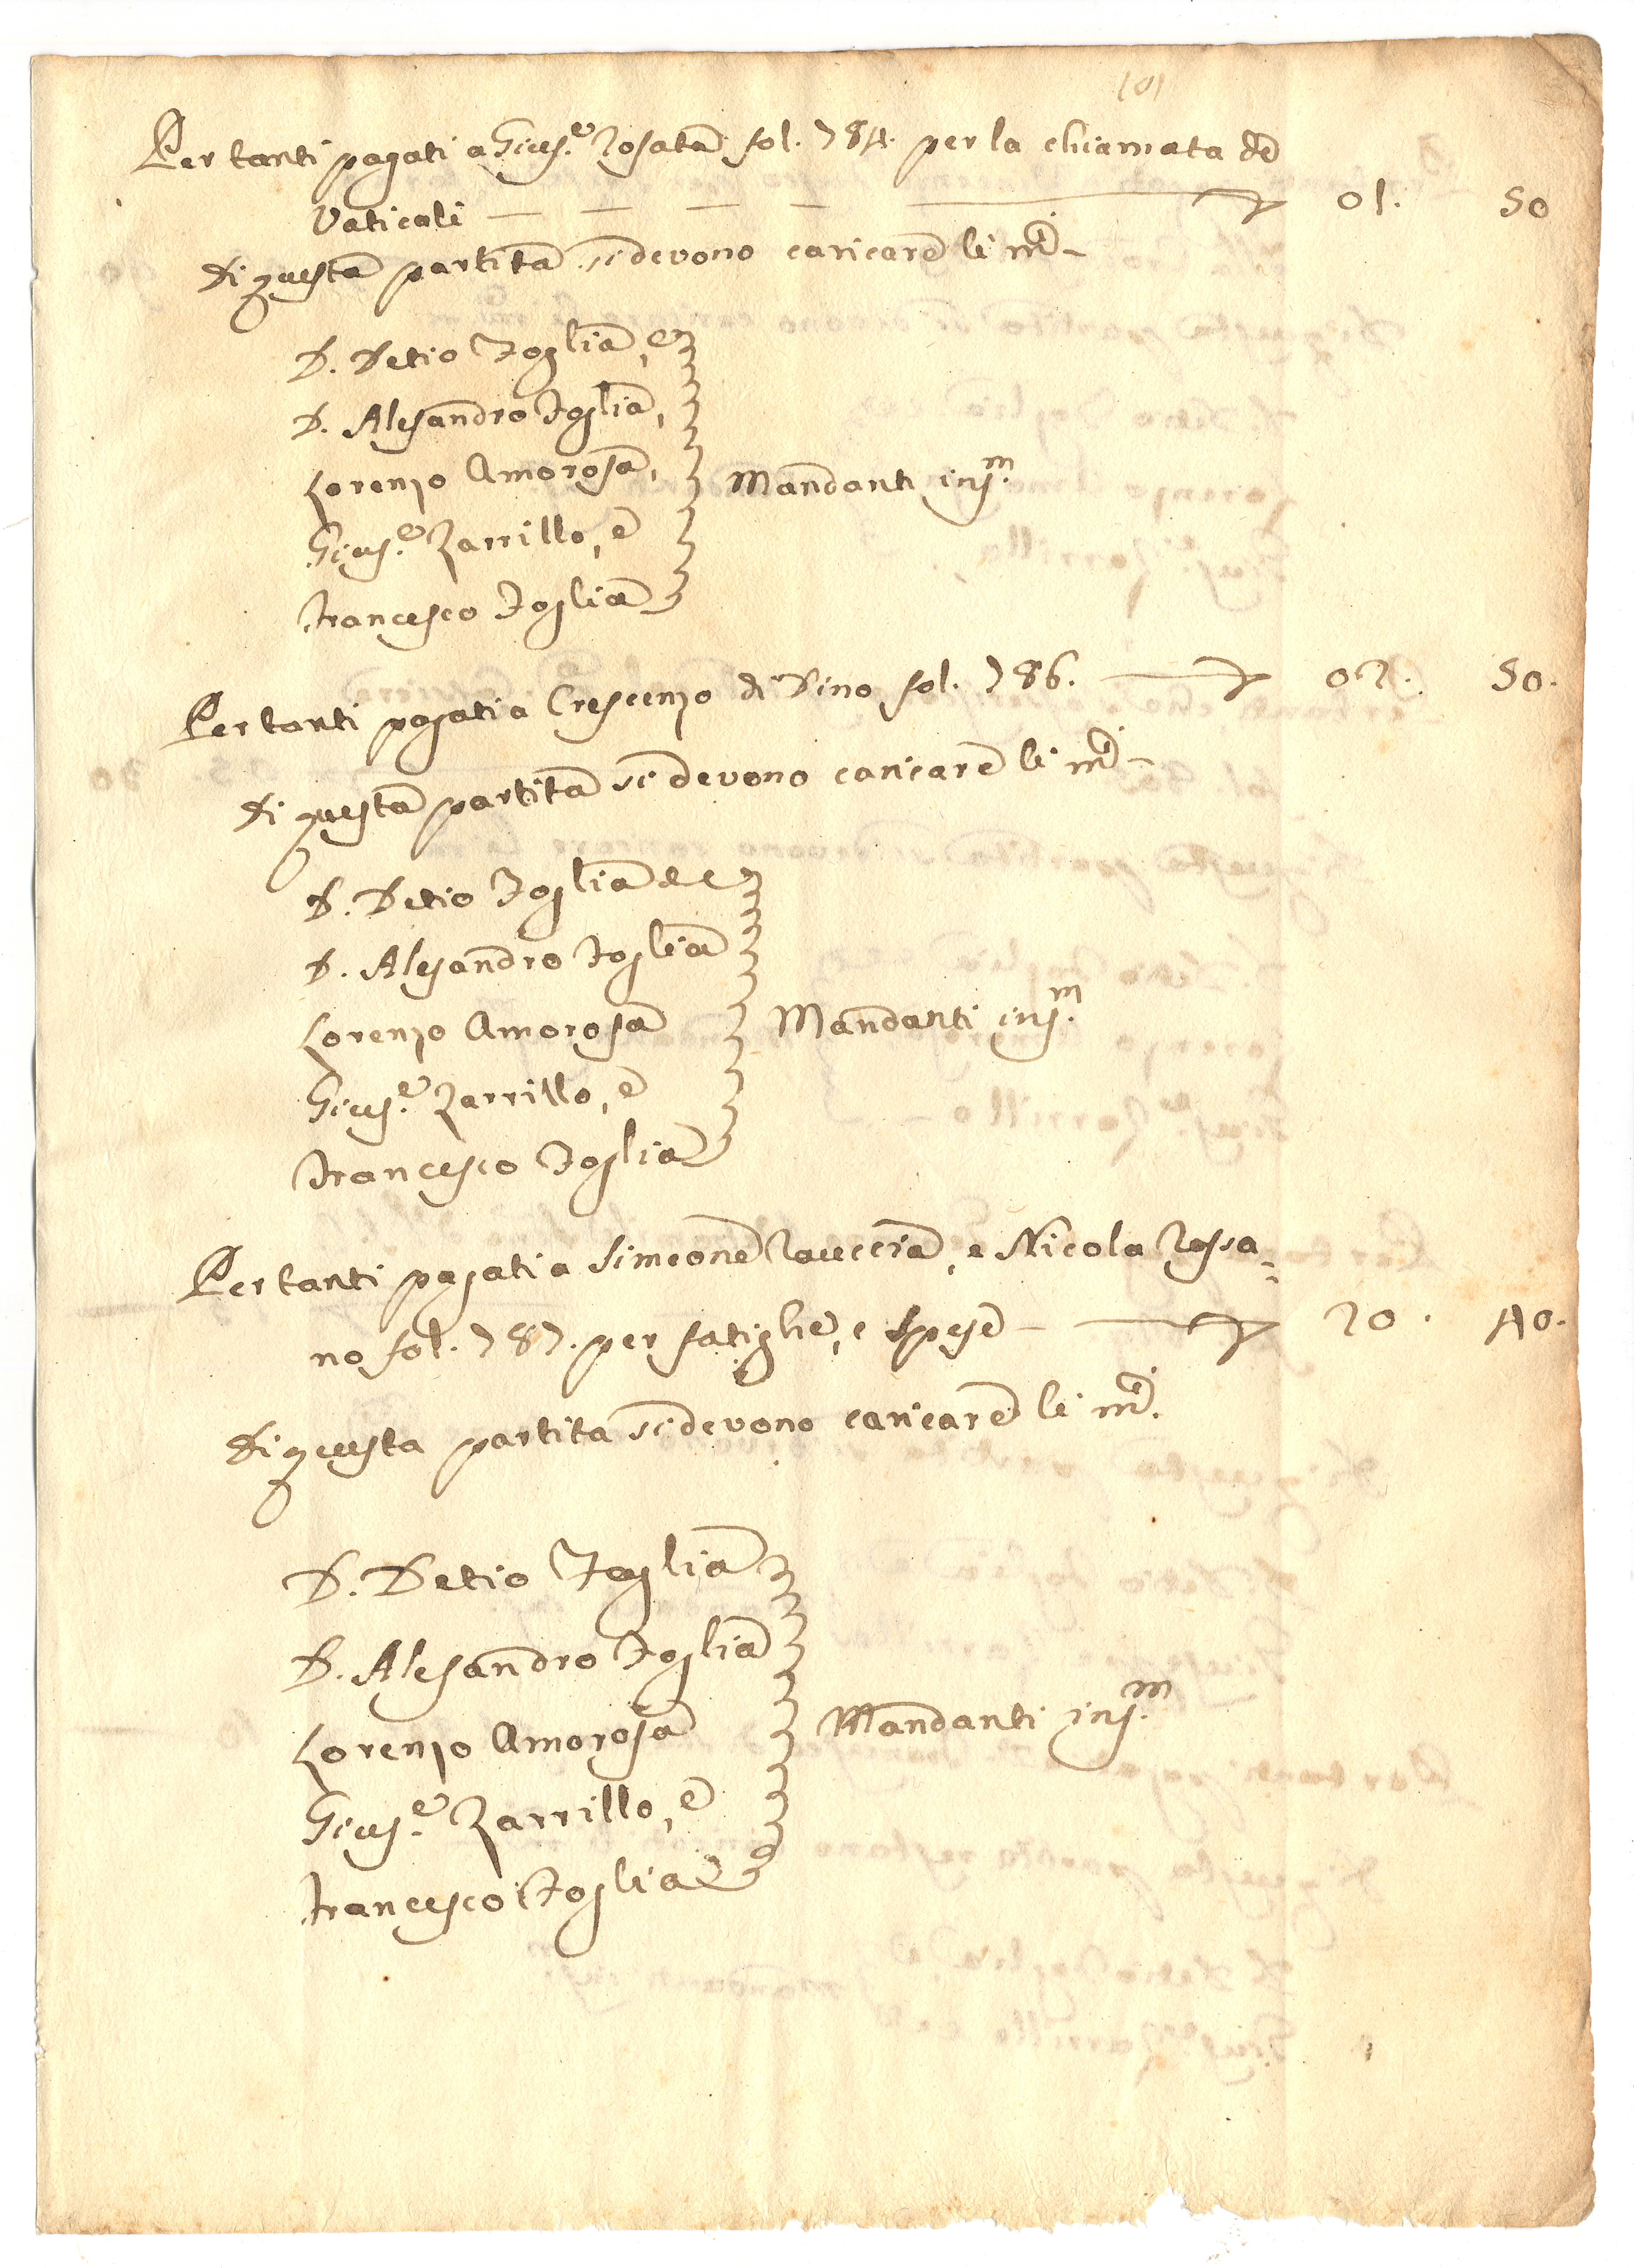 101
Per tanti pagati a Gius.e Rosata fol. 784. per la chiamata de
Vaticali — — — — 01. 50
Di questa partita si devono caricare li md.i -
D. Detio Foglia, e
D. Alesandro Foglia,
Lorenzo Amorosa,
Mandanti ins.m
Gius.e Zarrillo, e
Francesco Foglia
Per tanti pagati a Crescenzo di Dino fol. 786. — 02. 50.
Di questa partita si devono caricare li md.i -
D. Detio Foglia
D. Alesandro Foglia
Lorenzo Amorosa
Mandanti ins.m
Gius.e Zarrillo, e
Francesco Foglia
Per tanti pagati a Simeone Rauccia, e Nicola Rossa=
no fol. 787. per fatighe, e spese — 20. 40.
Di questa partita si devono caricare li md.i
D. Detio Foglia
D. Alesandro Foglia
Lorenzo Amorosa
Mandanti ins.m
Gius.e Zarrillo, e
Francesco Foglia